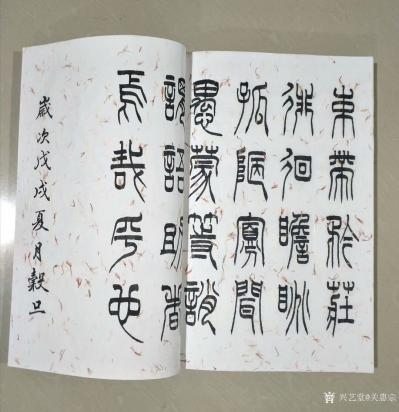 束帶矜莊
徘徊瞻眺
孤陋寡聞
愚蒙等誚
謂語助者
焉哉乎也
歲次戊戌夏月穀旦
兴艺堂@关惠宗